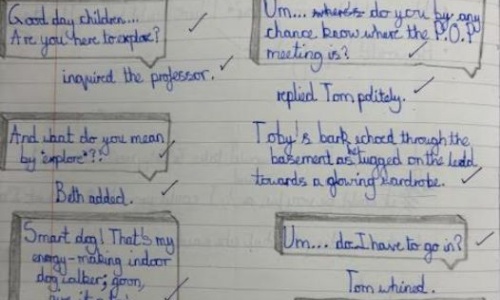 Good day children...
Are you here to explore?
inquired the professor.
Um... where's do you by any
chance know where the P.O.P
meeting is?
replied Tom politely.
And what do you mean
by "explore"?!
Beth added.
Toby's bark echoed through the
basement as he tugged on the lead
towards a glowing wardrobe.
Smart dog! That's my
energy-making indoor
dog walker; goon,
Um... do I have to go in?
Tom whined.